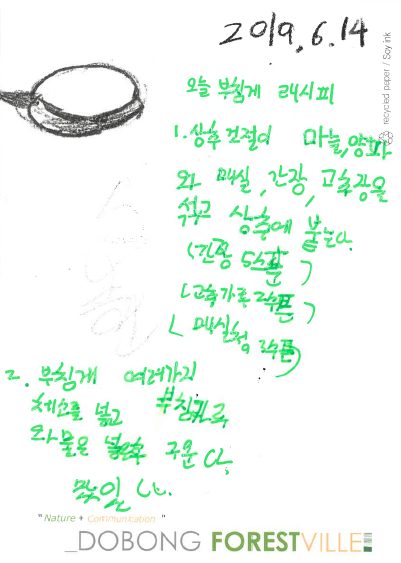 2019.6.14
recycled paper / Soy ink
오늘 부침게 래시피
1. 상추 겉절이 마늘, 양파
와 매실, 간장, 고추장을
섞고 상추에 붙는다.
(간장 5스푼)
(고추가로 2스푼)
( 매실청 2스푼)
2. 부침게 여러가지
채소를 넣고 부침가루
와 물을 넣은후 구운다.
" Nature + Communication "
_DOBONG FORESTVILLE